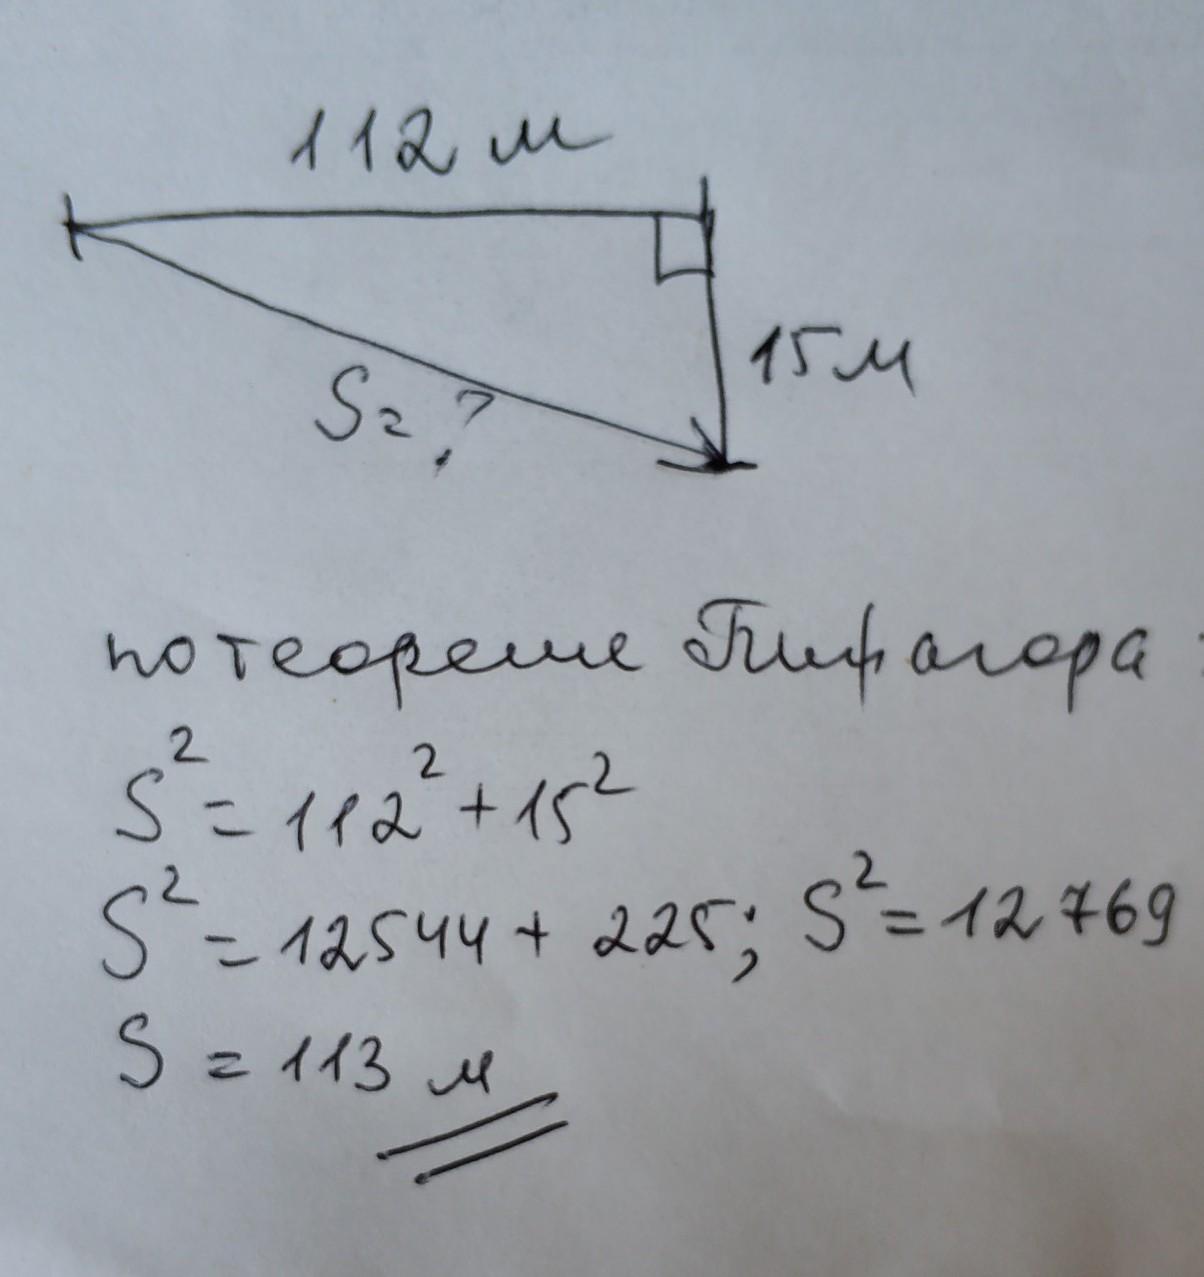 112 м
15м
S=?
по теореме Пифагора:
S² = 112² + 15²
S² = 12544 + 225; S² = 12769
S = 113 м